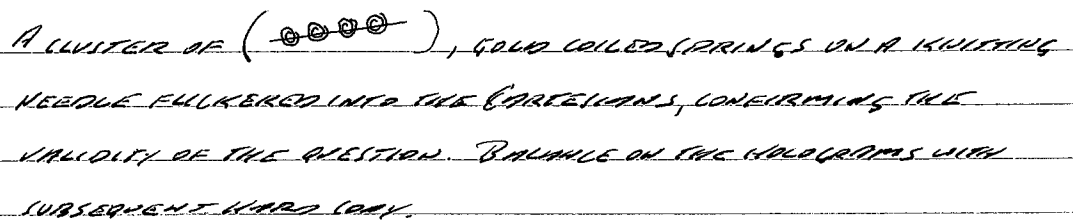 A CLUSTER OF ( ), GOLD COILED SPRINGS ON A KNITTING
NEEDLE FLICKERED INTO THE CARTESIANS, CONFIRMING THE
VALIDITY OF THE QUESTION. BALANCE ON THE HOLOGRAMS WITH
SUBSEQUENT HARD COPY.